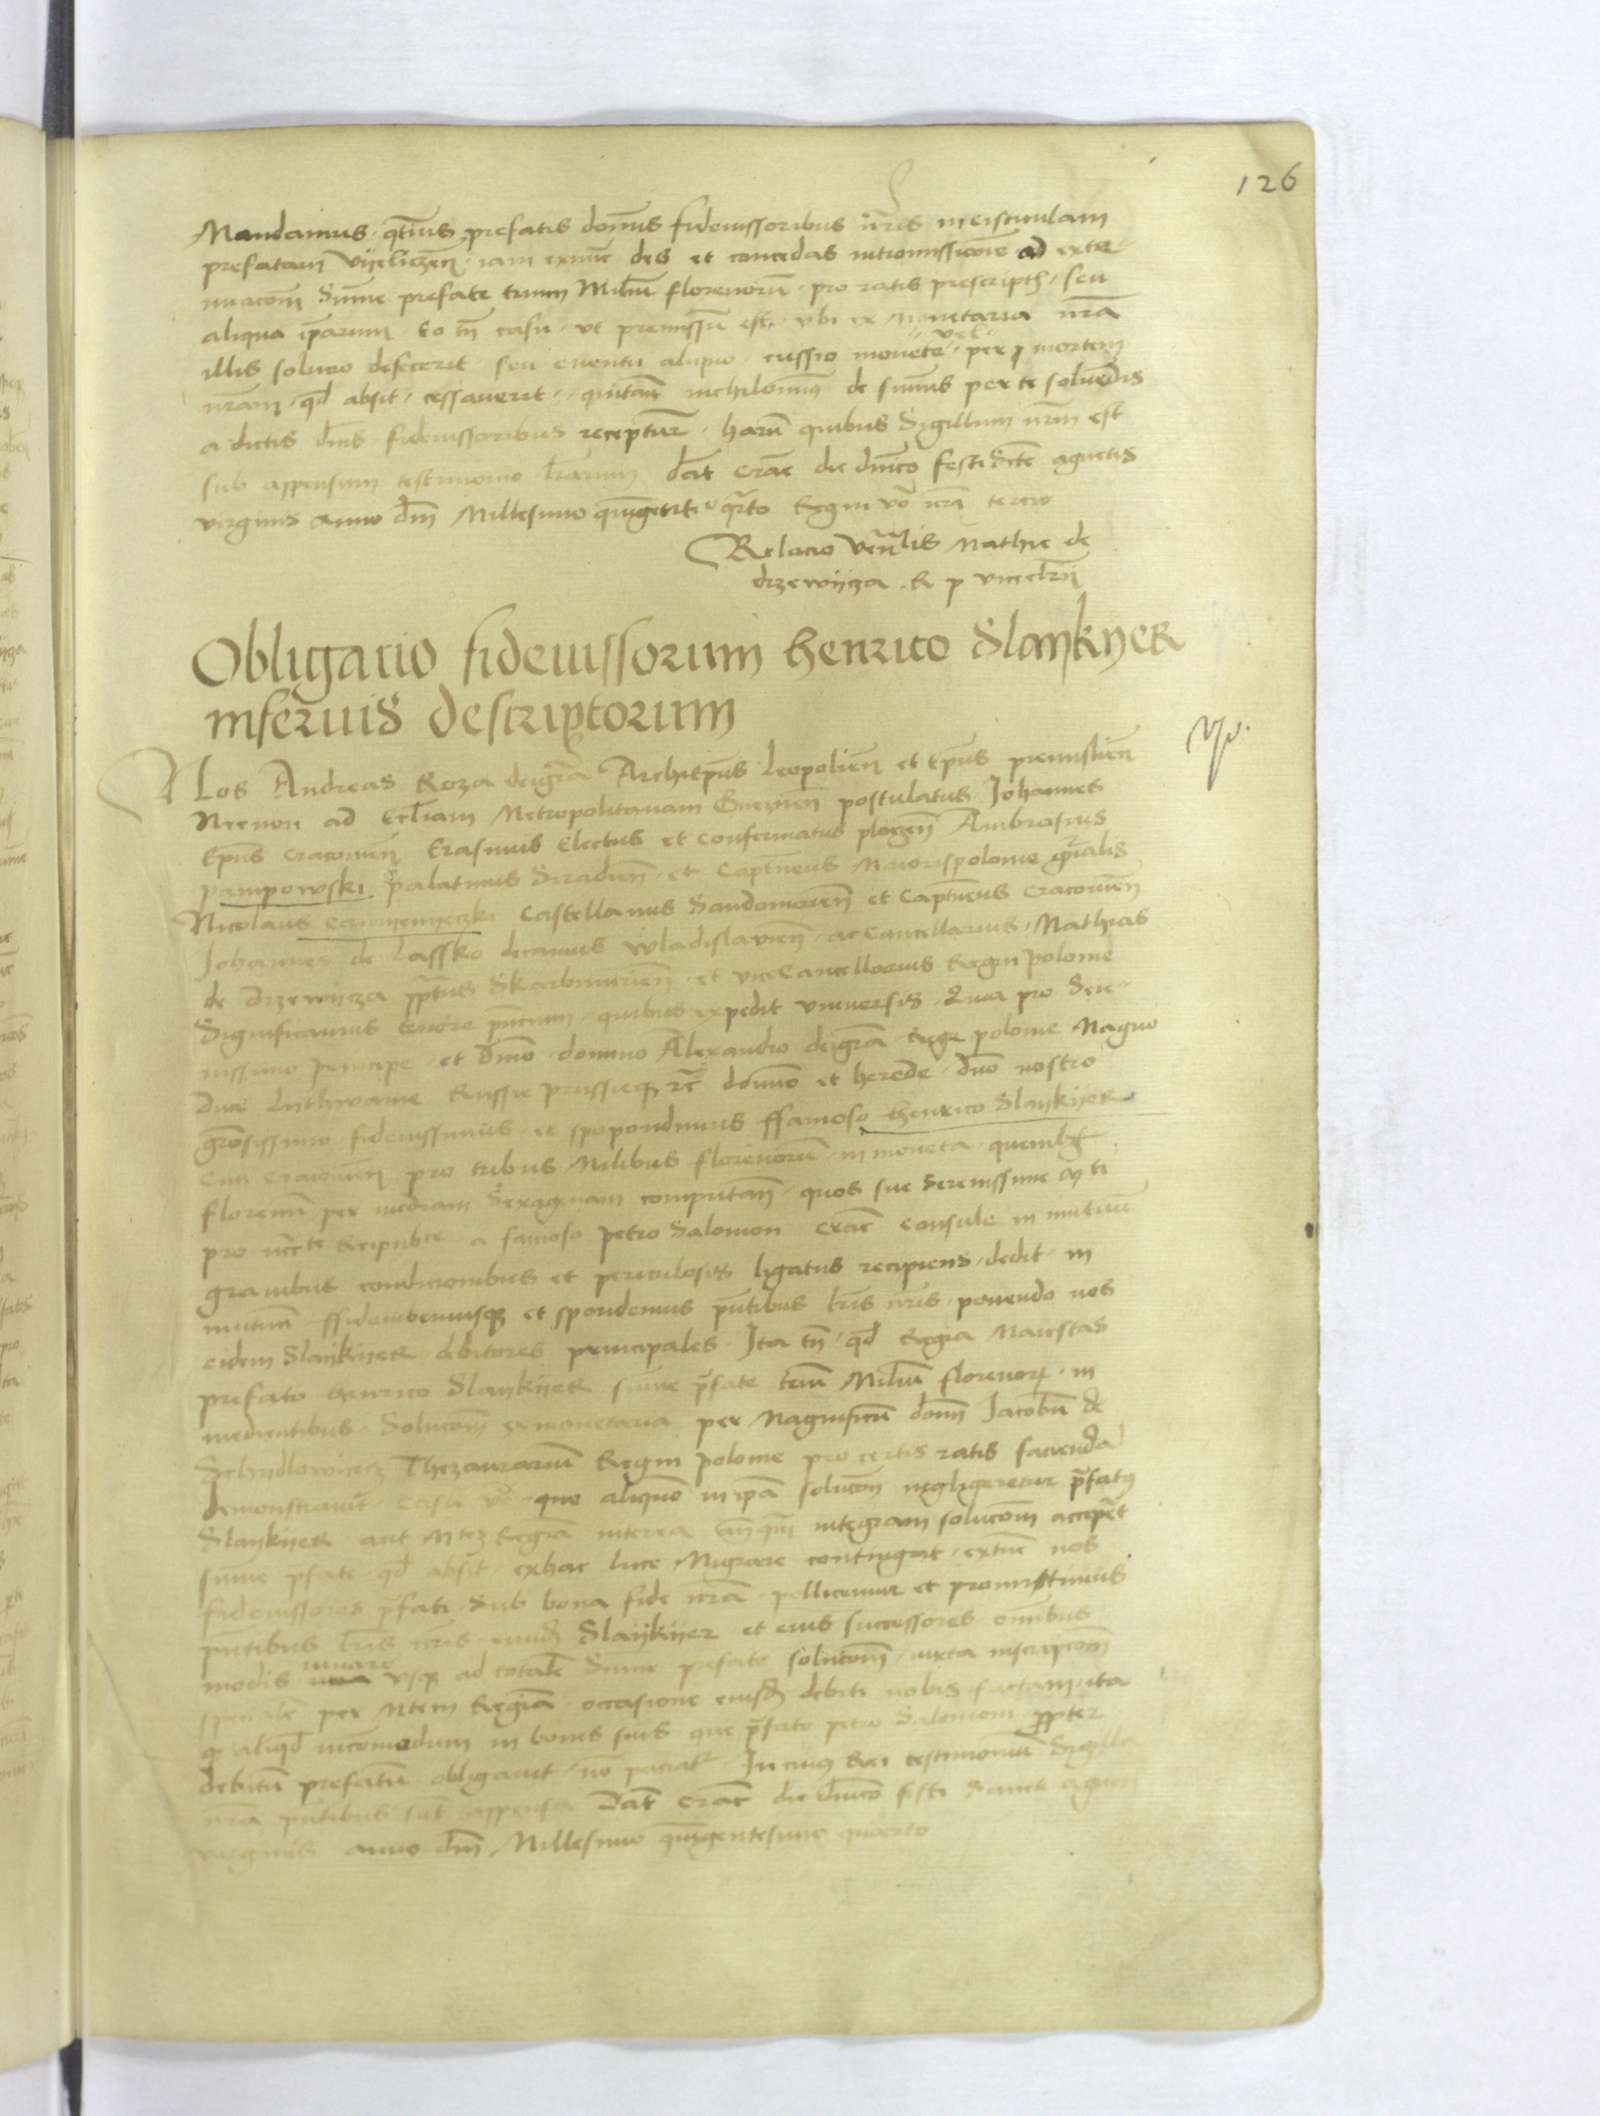 126
Mandamus qtin͂us prefatis domīs fideiussoribus nr̄is
prefatam Vyeliczen̄ iam extūc des et concedas intromissionē ad exte-
nuacōm Sūme prefate trium Miliū florenorū pro ratis prescript seu
aliqua ip̄arum Eo tn̄ casu ut premissū est ubi ex Monetaria nr̄a
illis solucio defecerit seu eventu aliquo cussio monete vel per mortem
nr̄am qd̄ absit cessaverit quitan̄ nichilomin͂ de sum̄is per te soluēdis
a dictis dn̄is fideiussoribus receptur harū quibus Sigillum nr̄m est
sub appensum testimonio lr̄arum Dat Crac̄ die dn̄ico festi Sc̄te Agnetis
virginis anno dn̄i Millesimo quīgentē° qr̄to Regni vō nr̄i tercio
Relacio Ven̄lis Mathie de
drzewycza R P vicecan̄
Obligacio fideiussorum henrico Slaykyer
inferius descriptorum
Nos Andreas Roza dei gr̄a Archiep̄us Leopolien̄ et Ep̄us premislien̄
Necnon ad Eccl̄iam Metropolitanam Gneznen̄ postulatus Johannes
Ep̄us Cracovien̄ Erasmus Electus et confirmatus plocen̄ Ambrosius
pampowski palatinus Siradien̄ et Capt̄neus Maiorispolonie gn̄ralis
Nicolaus Castellanus Sandomirien̄ et Capt̄neus Cracovien̄
Johannes de Lassko decanus Wladislavien̄ ac Cancellarius Mathias
de Drzewycza pp̄tus Skarbimirien̄ et vicecancellarius Regni polonie
Significamus tenore pn̄cium quibus expedit universis Quia pro Sere-
nissimo principe et Dn̄o domino Alexandro dei gr̄a Rege polonie Magno
Duce Lithwanie Russie prussieq̄ &c domino et herede dn̄o nostro
gr̄osissimo fideiussimus et spopondimus ffamoso henrico Slaykyer
Civi Cracovien̄ pro tribus Milibus florenorū in moneta quemlibet
florenū per mediam Sexagenam computan̄ quos sue Serenissime M ti
pro Reipub̄ce a famoso petro Salomon Crac̄ Consule in mutuū
gravibus condicionibus et periculosis ligatus recipiens dedit in
mutuū ffideiubemusq̄ et spondemus pn̄tibus lr̄is nr̄is ponendo nos
eidem Slaykyer debitores principales Ita tn̄ qd̄ Regia Maiestas
prefato henrico Slaykyer sum̄e pr̄fate triū Miliū florenorū in
Solucōm ex monetaria per Magnificū dom̄ Jacobū de
Schydlowyecz Thezaurariū Regni polonie pro certis ratis faciendā
demonstravit Casu vō quo aliquo in ip̄a solucōm negligeretur pr̄fatus
Slaykyer aut Mtez Regiā interea integram solucōm acceperit
sum̄e pfate qd̄ absit exhac luce Migrare contingat extūc nos
fideiussores pr̄fati Sub bona fide nr̄a pollicemur et promittimus
pn̄tibus lr̄is nr̄is eund̄ Slaykyer et eius successores omībus
modis iuvare usq̄ ad totalē Sum̄e prefate solucōm iuxta inscripcōm
specialē per Mtem Regiā occasione eiusd̄ debiti nobis factam ita
q̄ aliqd̄ incomodum in bonis suis que pr̄fato petro Salomon propter
debitū prefatū obligavit nō paciat̄ In cuius Rei testimoniū Sigilla
nr̄a pn̄tibus sūt appensa Dat Crac̄ die Dn̄ico festi Sancte Agnetis
virginis anno dn̄i Millesimo quīgentesimo quarto